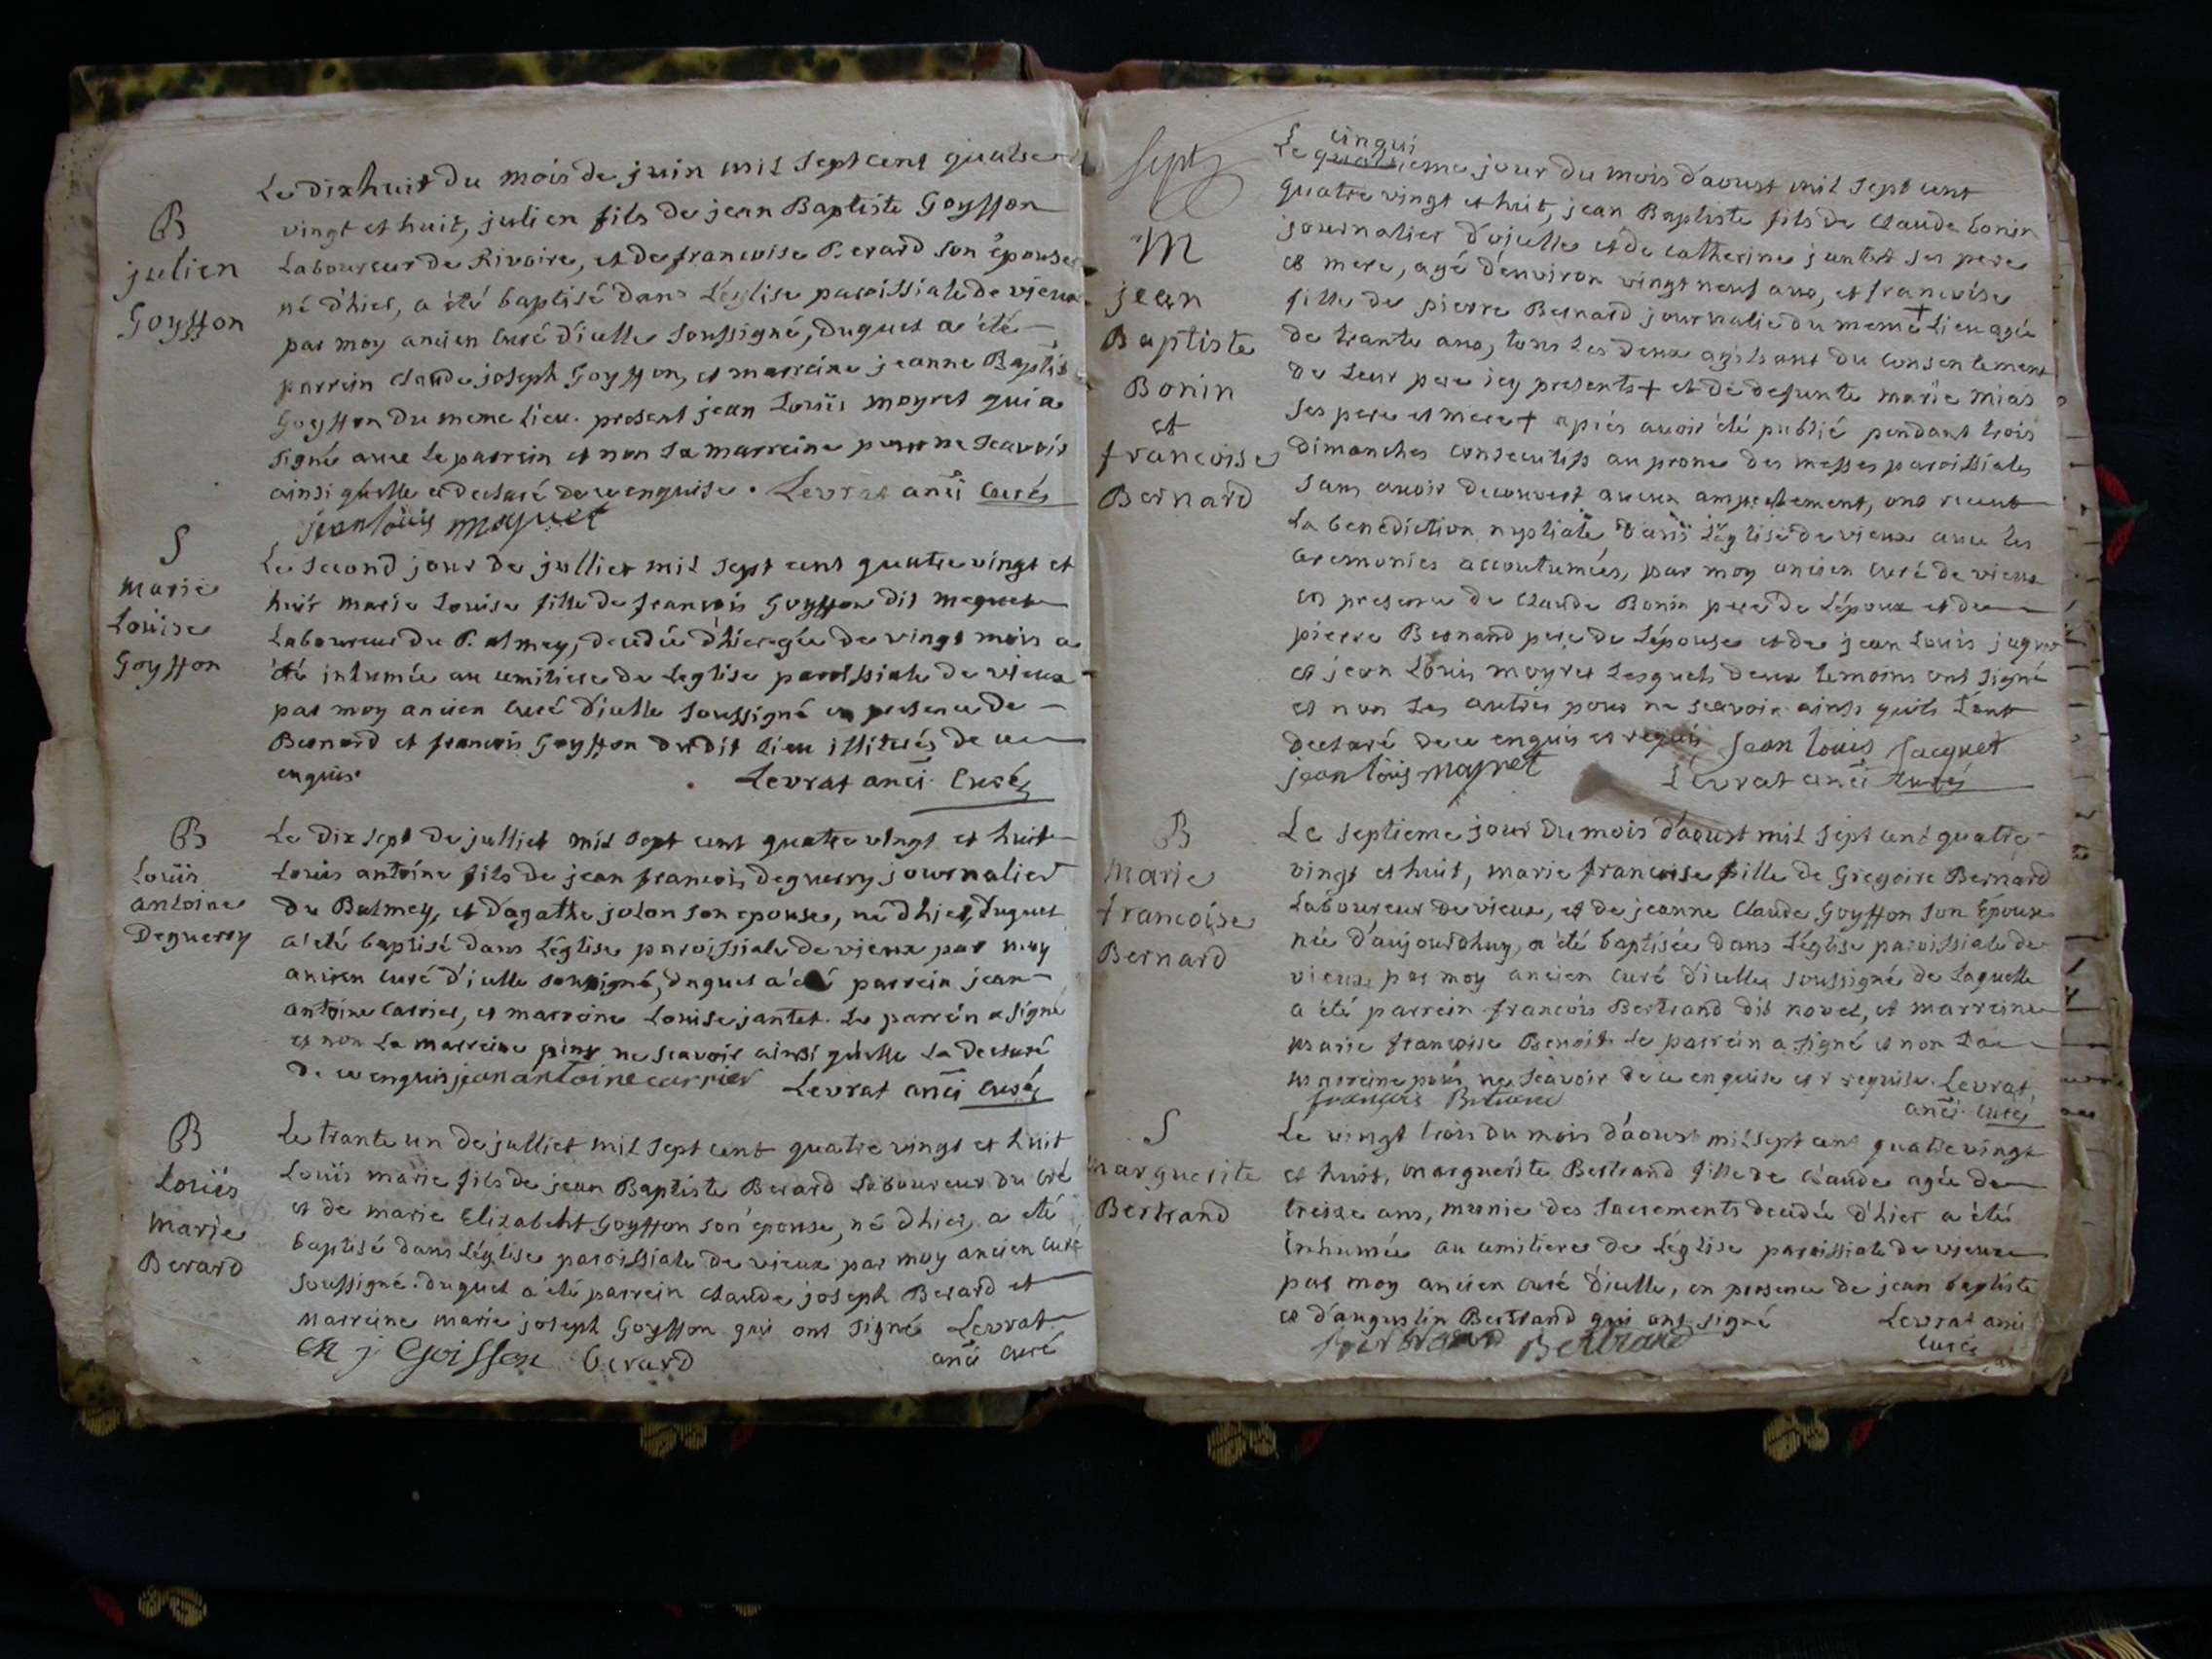 B
julien
Goyffon
Le dixhuit du mois de juin mil sept cent quatre
vingt et huit, julien fils de jean Baptiste Goyffon
Laboureur de Rivoire, et de francoise Berard son épouse
né d'hier, a été baptisé dans L'église paroissiale de vieux
par moy ancien curé d'icelle soussigné, duquel a été
parrein claude joseph Goyffon, et marreine jeanne Baptis
Goyffon du meme lieu. present jean Louis moyret qui a
signé avec le parrein et non La marreine pour ne scavoir
ainsi qu'elle a declaré de ce enquise. Levrat anci curé
jean louis
S
marie
Louise
Goyffon
Le second jour de julliet mil sept cent quatre vingt et
huit marie Louise fille de francois Goyffon dit
Laboureur du Balmey, decedée d'hier agée de vingt mois a
été inhumée au cimitiere de Leglise paroissiale de vieux
par moy ancien curé d'icelle soussigné en presence de
Bernard et francois Goyffon dudit lieu illiterés de ce
enquis. Levrat anci. Curé
B
Louis
antoine
Deguerry
Le dix sept de julliet mil sept cent quatre vingt et huit
Louis antoine fils de jean francois deguerry journalier
du Balmey, et d'agathe jolon son epouse, né d'hier, duquel
a été baptisé dans L'église paroissiale de vieux par moy
ancien curé d'icelle soussigné, duquel a été parrein jean
antoine carrier, et marreine Louise jantet. Le parrein a signé
et non La marreine pour ne scavoir ainsi qu'elle La declaré
De ce enquis jean antoine carrier Levrat anci curé
B
Louis
Marie
Berard
Le trante un de julliet mil sept cent quatre vingt et huit
Louis marie fils de jean Baptiste Berard Laboureur du cré
et de marie Elizabeht Goyffon son epouse, né d'hier, a été
baptisé dans L'église paroissiale de vieux par moy ancien curé
soussigné. duquel a été parrein claude joseph Berard et
marreine marie joseph Goyffon qui ont signé Levrat
M j Goiffon Berard anci curé
sept
M
jean
Baptiste
Bonin
et
francoise
Bernard
cinqui
Le quatrieme jour du mois d'aoust mil sept cent
quatre vingt et huit, jean Baptiste fils de Claude bonin
journalier d'ojulle et de catherine jantet ses pere
et mere, agé d'environ vingt neuf ans, et francoise
fille de pierre Bernard journalie du meme + Lieu agée
de trante ans, tous Les deux agissant du consentement
de Leur pere icy presents + et de defunte marie mias
ses pere et mere + apiés avoir été publié pendant trois
Dimanches consecutifs au prone des messes paroissiales
sans avoir decouvert aucun ampechement, ont receut
La benediction nuptiale dans L'église de vieux avec les
ceremonies accoutumées, par moy ancien curé de vieux
en presence de claude Bonin pere de L'époux et de
pierre Bernand pere de L'épouse et de jean Louis jaquet
et jean Louis moyret Lesquels deux temoins ont signé
et non Les autres pour ne scavoir ainsi quils L'ont
declaré de ce enquis et requis jean louis jacquet
jean louis mayret Levrat anci curé
B
Marie
francoise
Bernard
Le septieme jour du mois d'aoust mil sept cent quatre
vingt et huit, marie francoise fille de Gregoire Bernard
Laboureur de vieux, et de jeanne Claude Goyffon son Epouse
née d'aujourdhuy, a été baptisée dans L'église paroissiale de
vieux par moy ancien curé d'icelle soussigné de Laquelle
a été parrein francois Bertrand dit novel, et marreine
marie francoise Benoit Le parrein a signé et non La
marreine pour ne scavoir de ce enquise et requise. Levrat
françois anci. curé
S
marguerite
Bertrand
Le vingt trois du mois d'aoust mil sept cent quatre vingt
et huit, marguerite Bertrand fille de claude agée de
treize ans, munie des sacrements decedée d'hier a été
inhumée au cimitiere de L'église paroissiale de vieux
par moy ancien curé d'icelle, en presence de jean baptiste
et d'augustin Bertrand qui ont signé Levrat anci
Bertrand curé